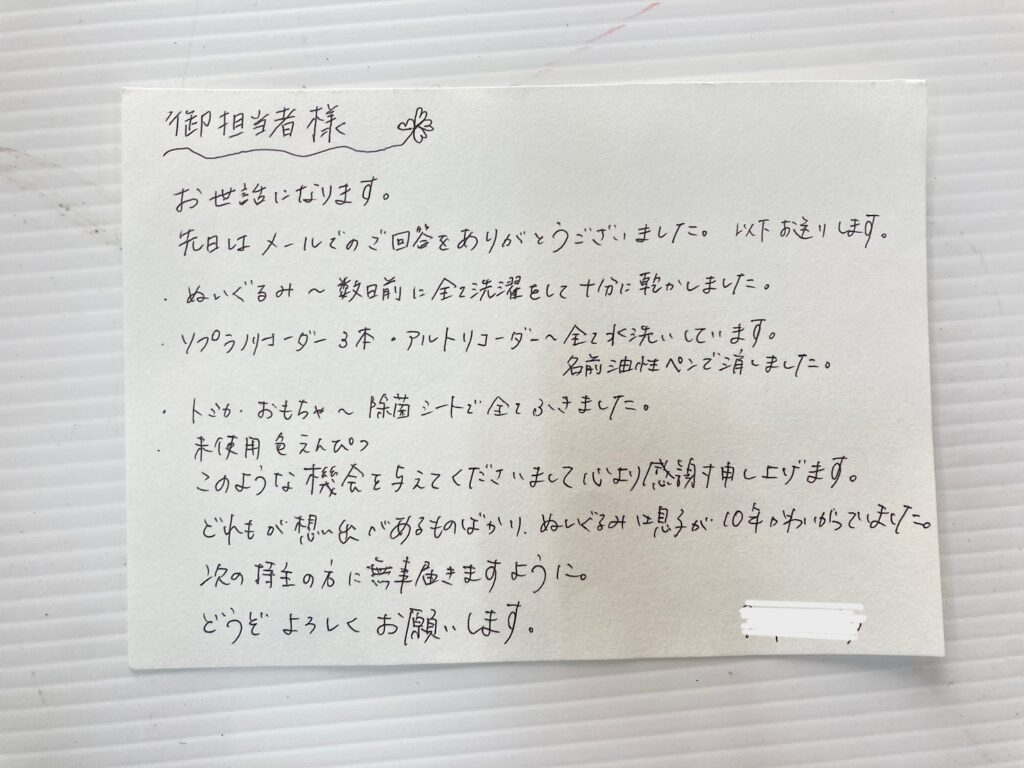 御担当者様
お世話になります。
先日はメールでのご回答をありがとうございました。 以下お送りします。
・ぬいぐるみ～数日前に全て洗濯をして十分に乾かしました。
・ソプラノリコーダー3本・アルトリコーダー～全て水洗いしています。
名前油性ペンで消しました。
・トミカ・おもちゃ～除菌シートで全てふきました。
・未使用色えんぴつ
このような機会を与えてくださいまして心より感謝申し上げます。
どれもが想い出があるものばかり、ぬいぐるみは息子が10年かわいがってました。
次の持主の方に無事届きますように。
どうぞよろしくお願いします。